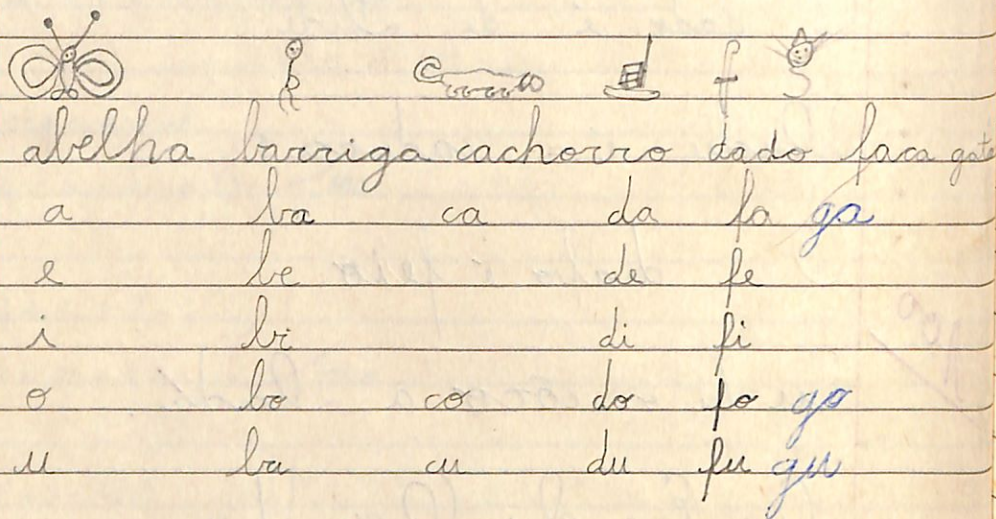 abelha barriga cachorro dado faca gato
a ba ca da fa ga
e be de fe
i bi di fi
o bo co do fo go
u bu cu du fu gu